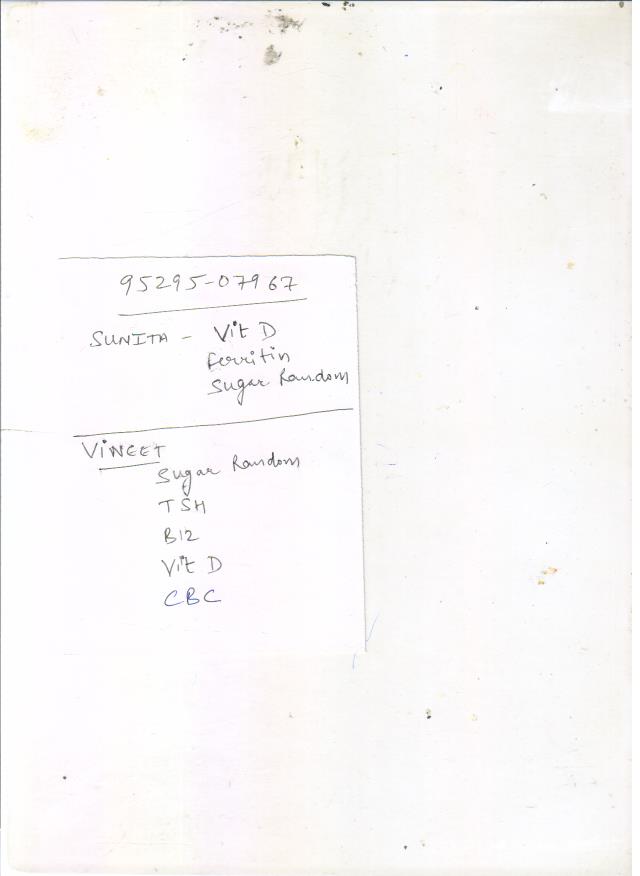 95295-07967
SUNITA - Vit D
Ferritin
Sugar Random
VINEET
Sugar Random
TSH
B12
Vit D
CBC